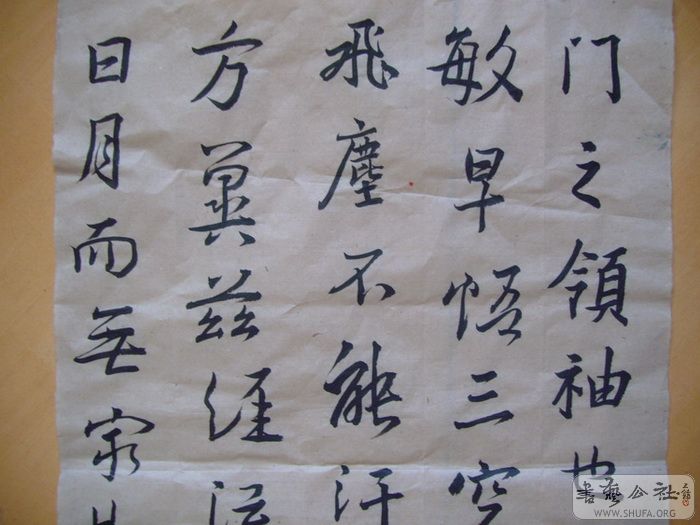 门之領袖也
敏早悟三空
飛塵不能汙
方冀兹經流
日月而無窮
書藝公社
WWW.SHUFA.ORG